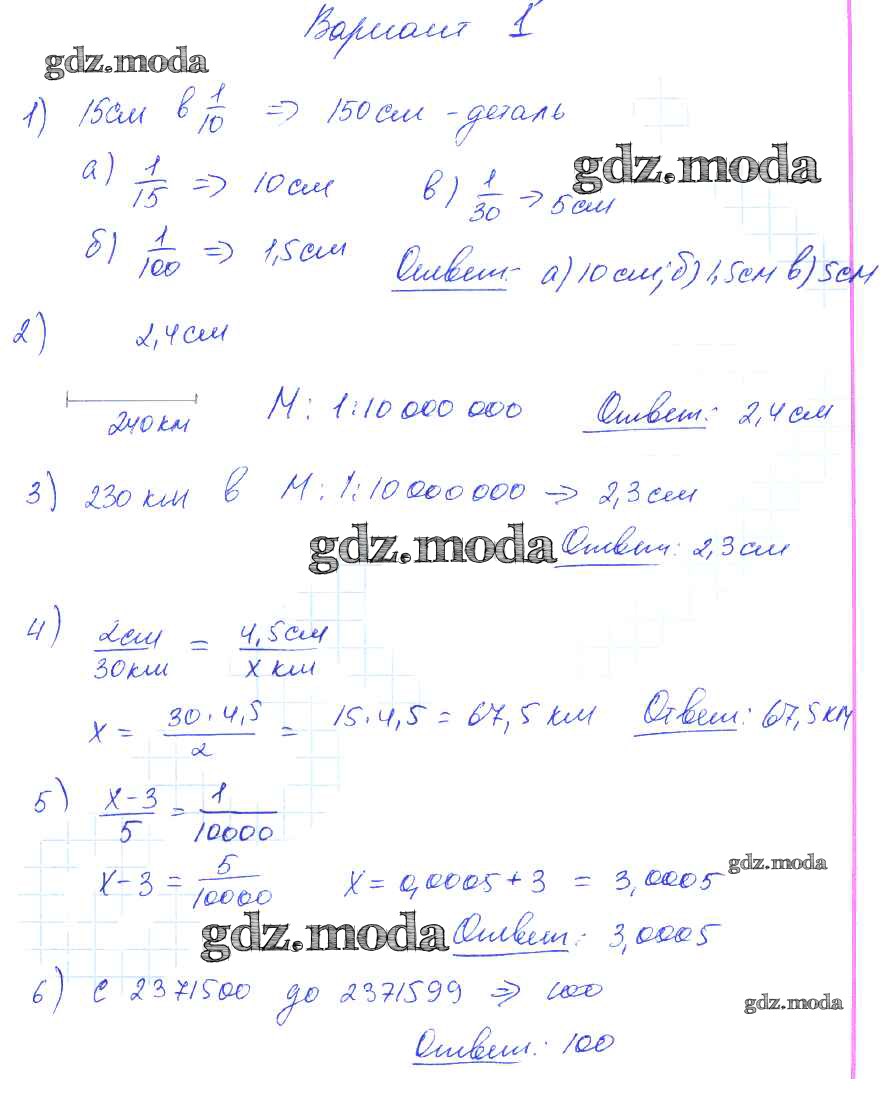 Вариант 1
gdz.moda
1) 15см в 1/10 => 150см - деталь
а) 1/15 => 10см в) 1/30 -> 5см
gdz.moda
б) 1/100 => 1,5см Ответ: а) 10см; б) 1,5см в) 5см
2) 2,4см
240км М: 1:10 000 000 Ответ: 2,4см
3) 230км в М: 1:10 000 000 => 2,3см
gdz.moda Ответ: 2,3см
4) 2см/30км = 4,5см/x км
x = 30·4,5/2 = 15·4,5 = 67,5 км Ответ: 67,5км
5) x-3/5 = 1/10000
x-3 = 5/10000 x = 0,0005+3 = 3,0005 gdz.moda
gdz.moda Ответ: 3,0005
6) с 2371500 до 2371599 => 100 gdz.moda
Ответ: 100